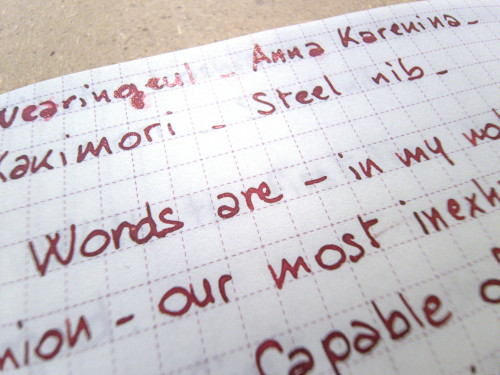 Wearingeul - Anna Karenina -
Kakimori - Steel nib -
Words are - in my
- our most
Capable